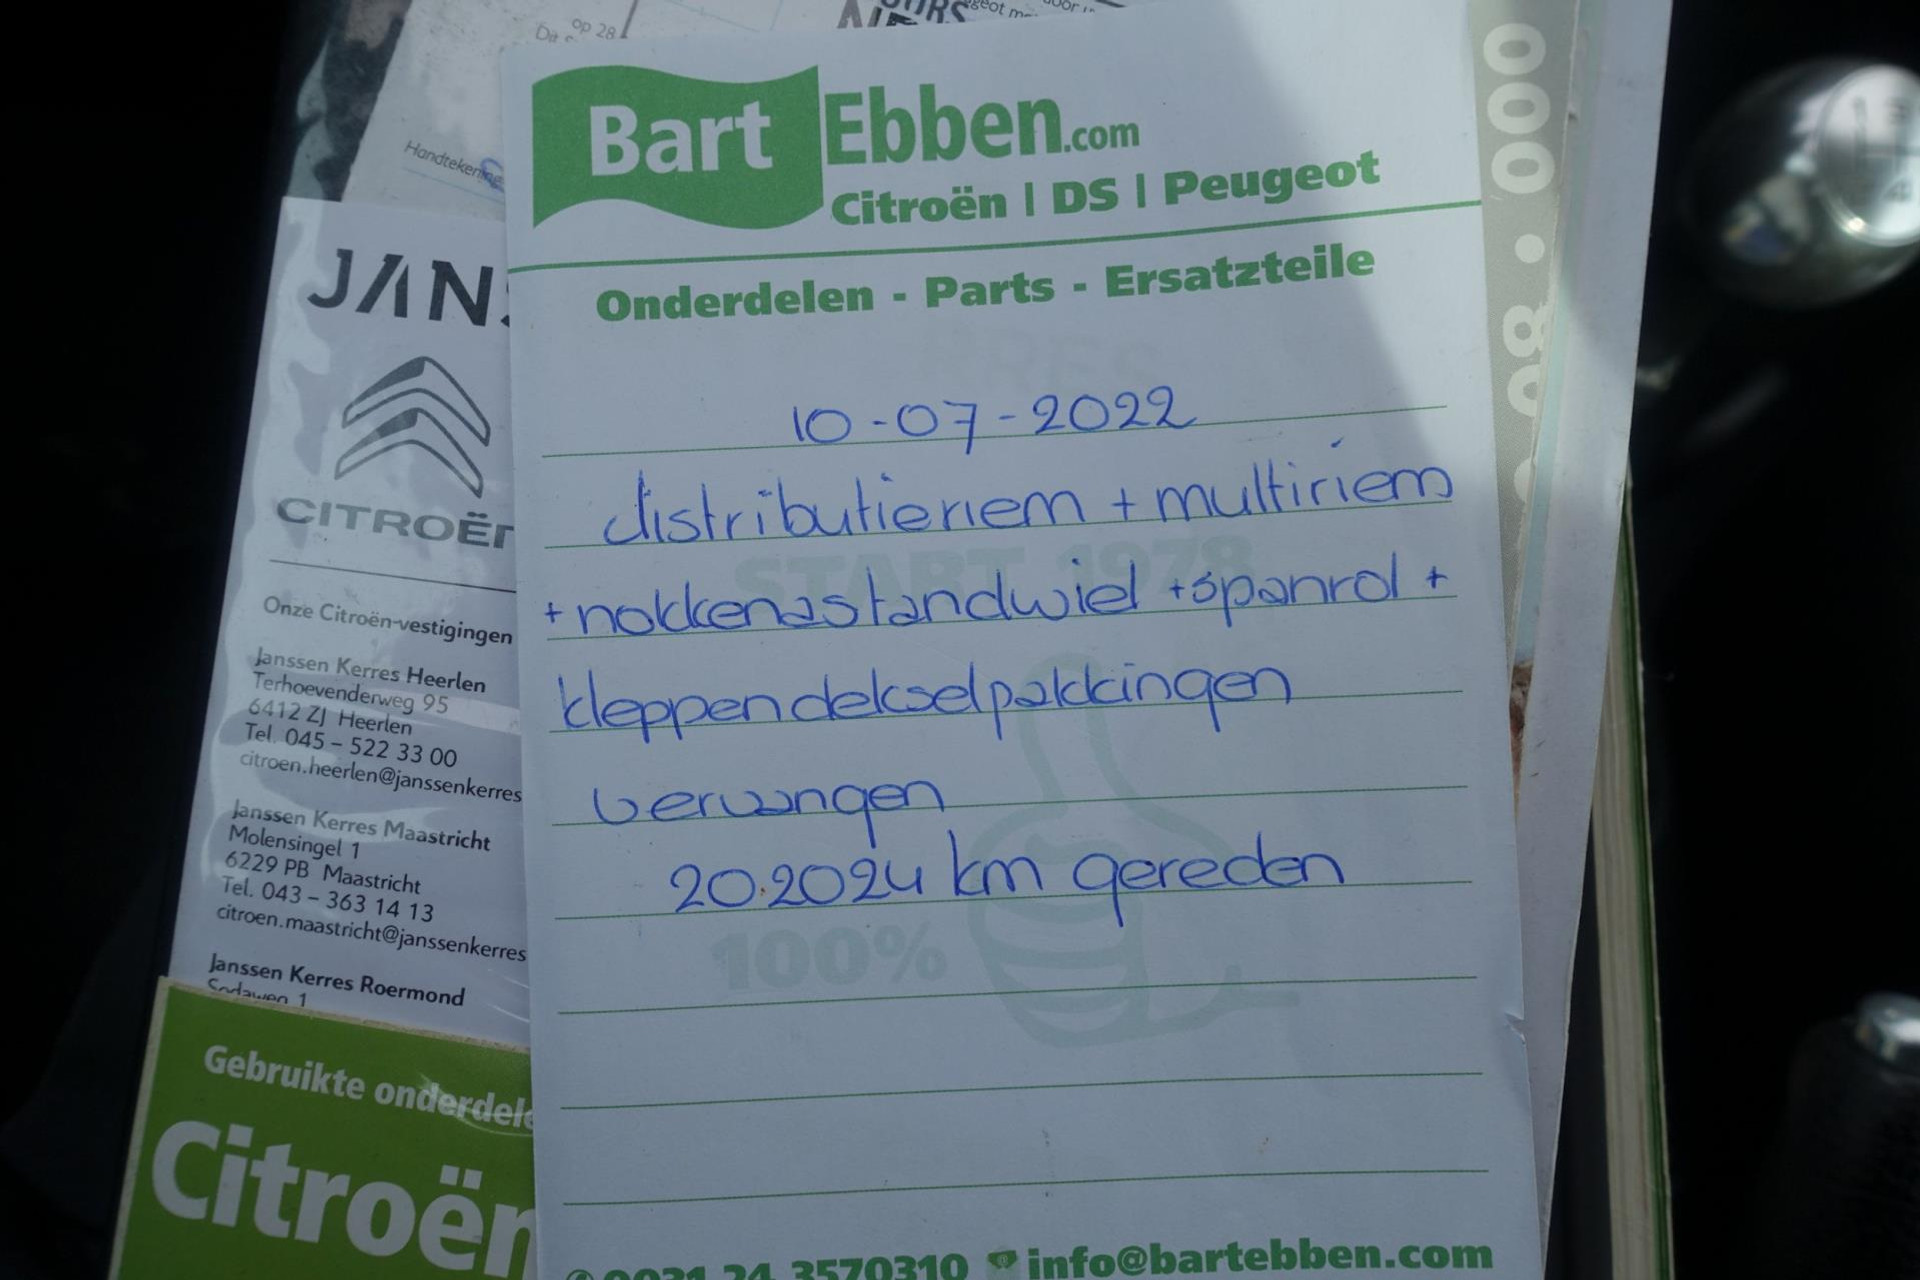 Bart Ebben.com
Citroën | DS | Peugeot
Onderdelen - Parts - Ersatzteile
10-07-2022
distributieriem + multiriem
+ nokkenastandwiel + spanrol +
kleppendekselpakkingen
vervangen
202024 km gereden
START 1978
100%
0031 24 3570310 info@bartebben.com
op 28
Handtekening
JANS
CITROËN
Onze Citroën-vestigingen
Janssen Kerres Heerlen
Terhoevenderweg 95
6412 ZJ Heerlen
Tel. 045 – 522 33 00
citroen.heerlen@janssenkerres
Janssen Kerres Maastricht
Molensingel 1
6229 PB Maastricht
Tel. 043 – 363 14 13
citroen.maastricht@janssenkerres
Janssen Kerres Roermond
Gebruikte onderdele
Citroën